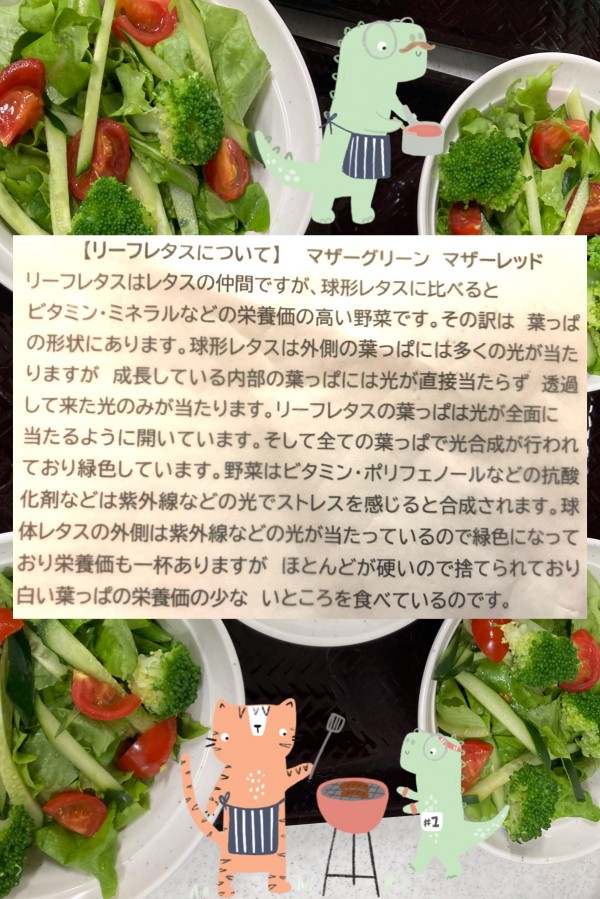 【リーフレタスについて】 マザーグリーン マザーレッド
リーフレタスはレタスの仲間ですが、球形レタスに比べると
ビタミン・ミネラルなどの栄養価の高い野菜です。その訳は 葉っぱ
の形状にあります。球形レタスは外側の葉っぱには多くの光が当た
りますが 成長している内部の葉っぱには光が直接当たらず 透過
して来た光のみが当たります。リーフレタスの葉っぱは光が全面に
当たるように開いています。そして全ての葉っぱで光合成が行われ
ており緑色しています。野菜はビタミン・ポリフェノールなどの抗酸
化剤などは紫外線などの光でストレスを感じると合成されます。球
体レタスの外側は紫外線などの光が当たっているので緑色になって
おり栄養価も一杯ありますが ほとんどが硬いので捨てられており
白い葉っぱの栄養価の少な いところを食べているのです。
#1